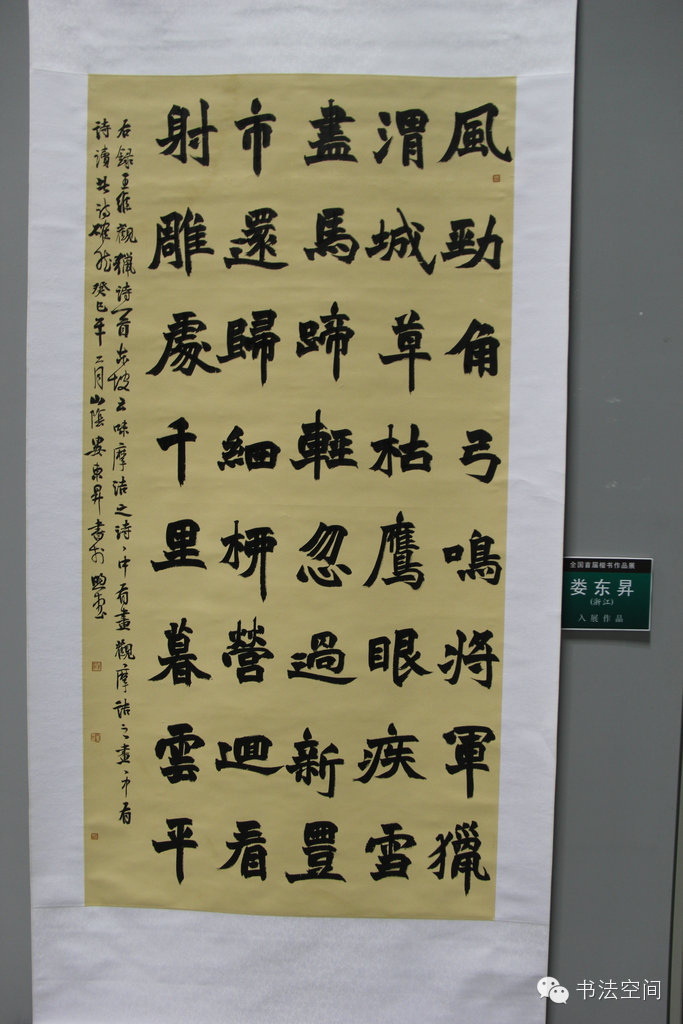 風勁角弓鳴將軍獵
渭城草枯鷹眼疾雪
盡馬蹄輕忽過新豊
市還歸細柳營迴看
射雕處千里暮雲平
右錄王維觀獵詩一首東坡云味摩詰之詩、中有畫觀摩詰之畫、中有
詩讀此詩確然癸巳年二月山陰婁東昇書於
全国首届楷书作品展
娄东昇
(浙江)
入展作品
书法空间